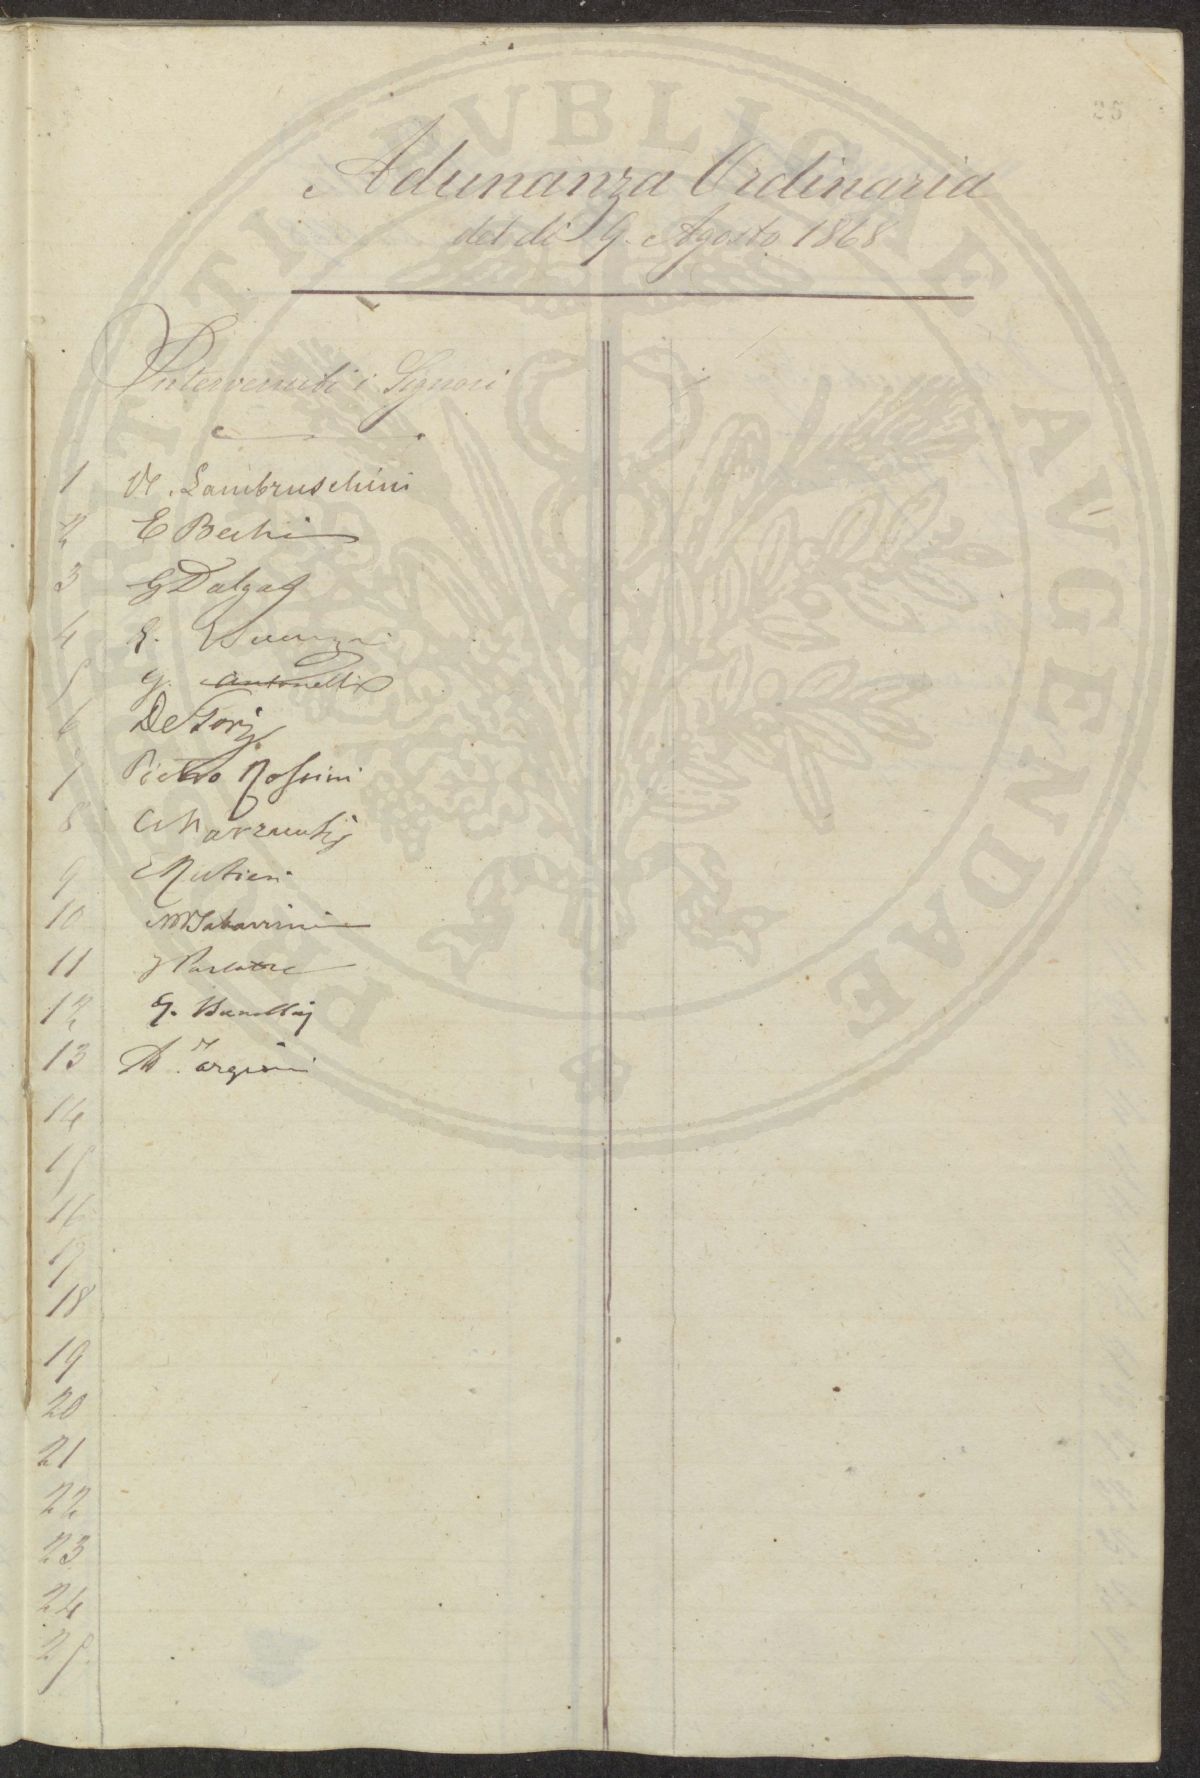 25
Adunanza Ordinaria
del dì 9. Agosto 1868
Intervenuti i Signori
1 R. Lambruschini
2 E Bechi
3 G Dalgas
4 G.
5 G. Antonelli
6 De Gori
7 Pietro Rossini
8 C Marzucchi
9
10 M Tabarrini
11 F Parlatore
12 G.
13 A. Targioni
14
15
16
17
18
19
20
21
22
23
24
25
PVBLICAE AVGENDAE